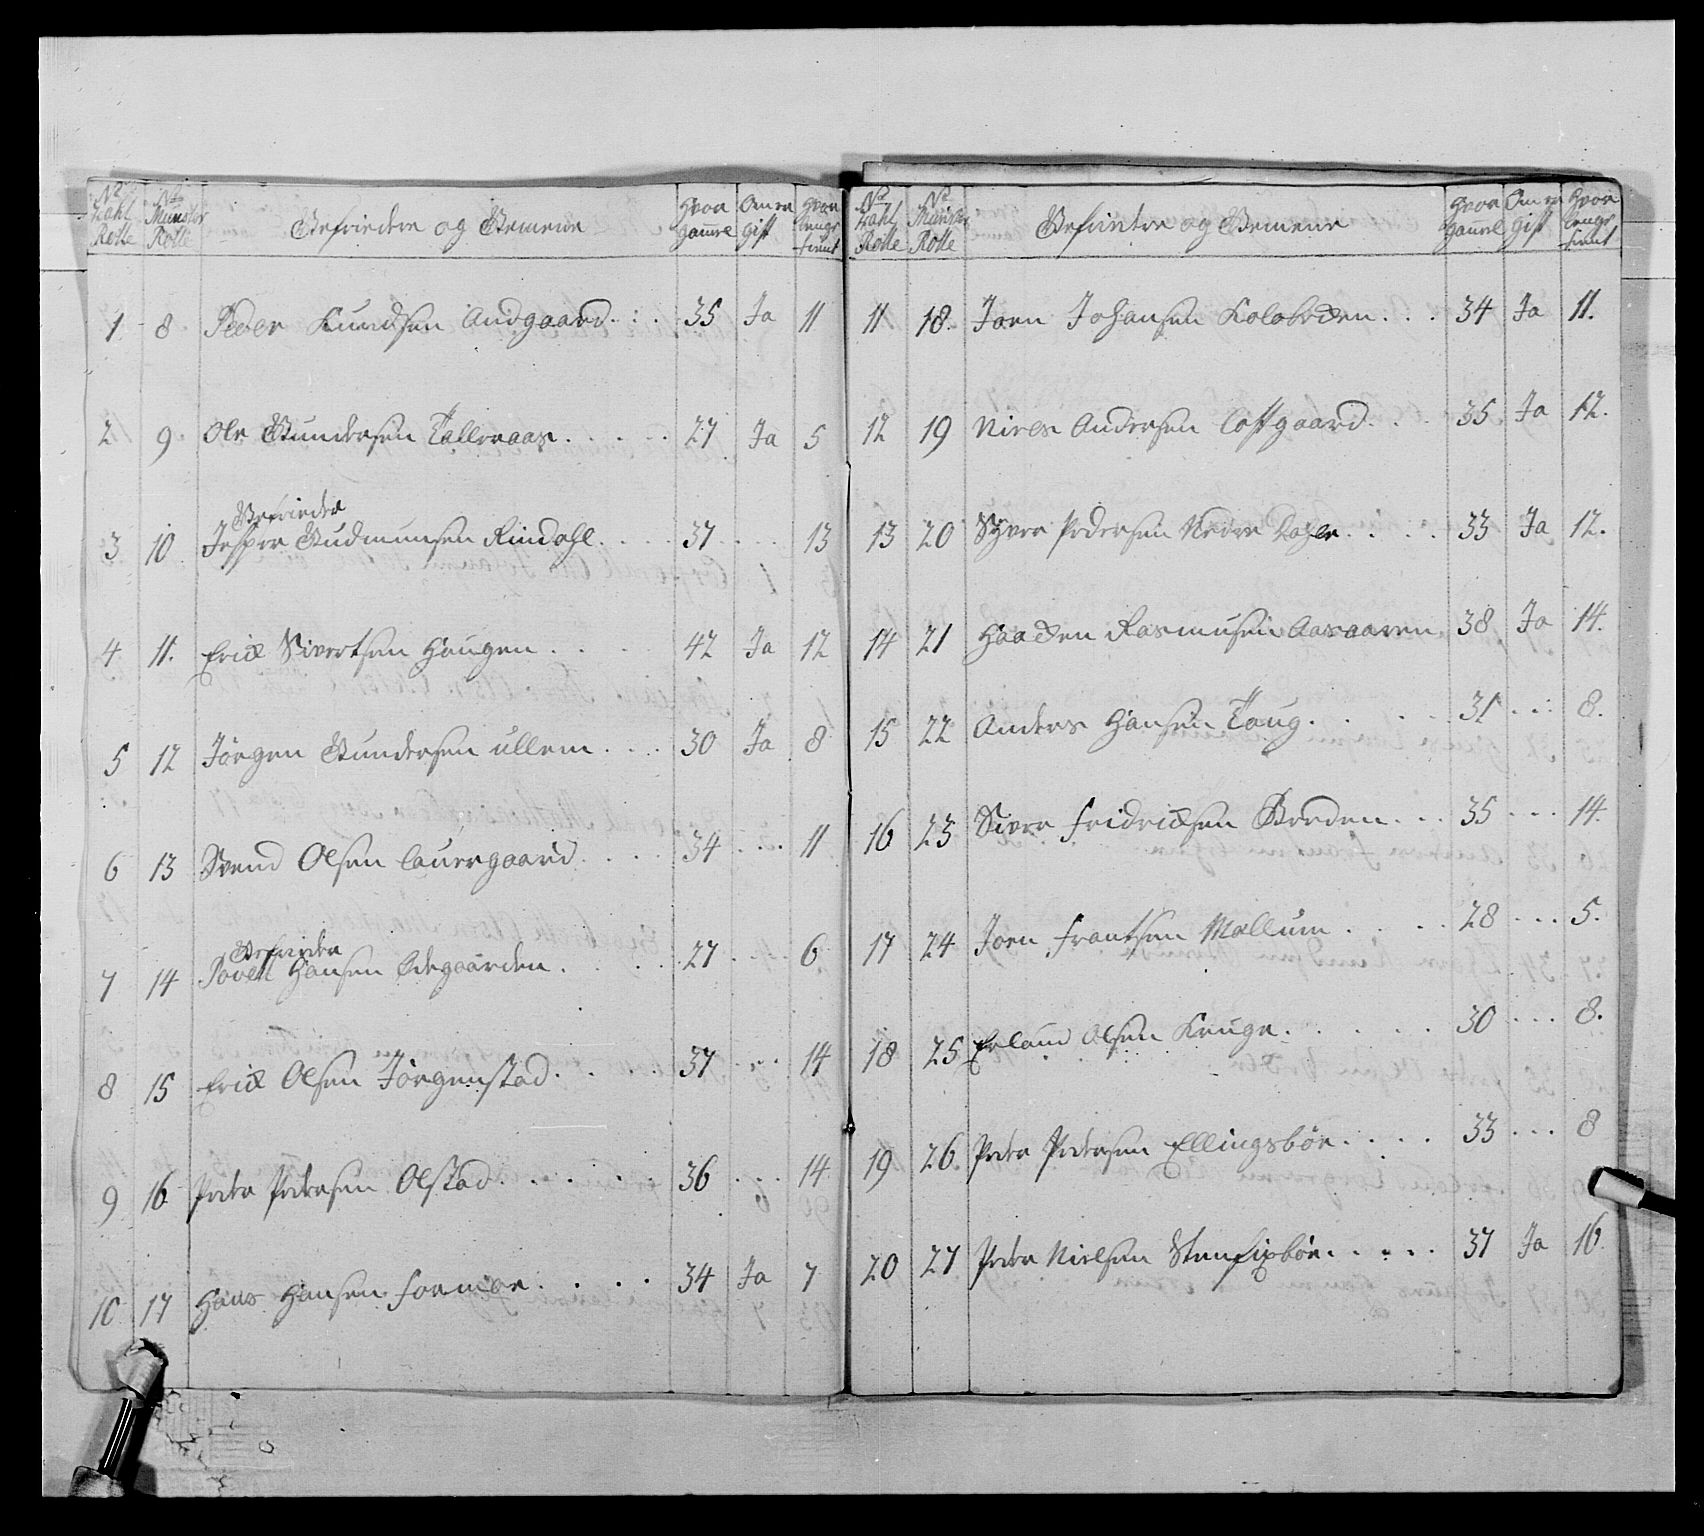 No Zahl Rolle | No Munster Rolle | Gefriedere og Gemeene | Hvor Gammel | Om er Gift | Hvor lenge tient
1 8 Peder Knudsen Andgaard 35 Ja 11
2 9 Ole Gundersen Talleraas 27 Ja 5
Gefrieder
3 10 Jesper Gudmunsen Rindahl 37 13
4 11. Erick Sivertsen Haugen 42 Ja 12
5 12 Jørgen Gundersen Ullem 30 Ja 8
6 13 Svend Olsen Lauergaard 34 11
Gefrieder
7 14 Povell Hansen Ødegaarden 27 6
8 15 Erick Olsen Jørgenstad 37 14
9 16 Peder Pedersen Olstad 36 14
10 17 Hans Hansen Formoe 34 Ja 7
No Zahl Rolle | No Munster Rolle | Gefrieder og Gemeene | Hvor Gammel | Om er Gift | Hvor lenge tient
11 18. Joen Johansen Kolobecken 34 Ja 11.
12 19 Niels Andersen Loftgaard 35 Ja 12.
13 20 Syver Pedersen Nedre Dahle 33 Ja 12.
14 21 Haacken Rasmusen Aasaaren 38 Ja 14.
15 22 Anders Hansen Toug 31 8.
16 23 Siver Fridricksen Breden 35 14.
17 24 Joen Frantsen Mællum 28 5.
18 25 Erland Olsen Kruge 30 8.
19 26 Peder Pedersen Ellingsbøe 33 8
20 27 Peder Nielsen Stenfixbøe 37 Ja 16